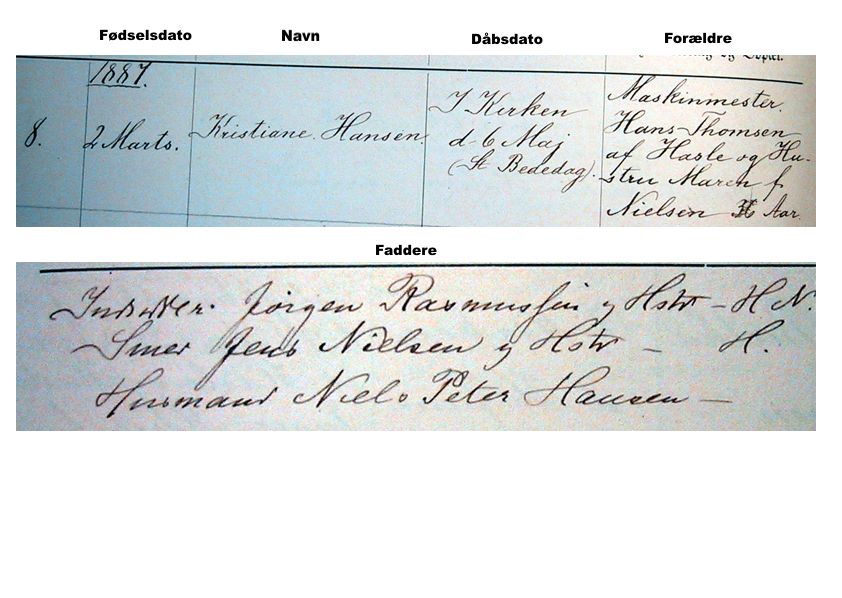 Fødselsdato Navn Dåbsdato Forældre
1887.
8. 2 Marts. Kristiane Hansen.
I Kirken
d. 6 Maj
(St Bededag).
Maskinmester.
Hans Thomsen
af Hasle og Hu-
stru Maren f.
Nielsen Aar.
Faddere
Jørgen Rasmussen og Hstr – H N.
Smed Jens Nielsen og Hstr – H.
Husmand Niels Peter Hansen –